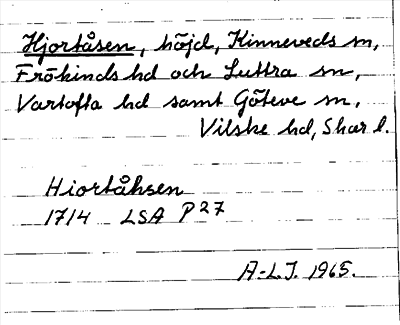 Hjortåsen, höjd, Kinneveds sn,
Frökinds hd och Luttra sn,
Vartofta hd samt Göteve sn,
Vilske hd, Skar l.
Hiortåhsen
1714 LSA P27
A-L.J. 1965.